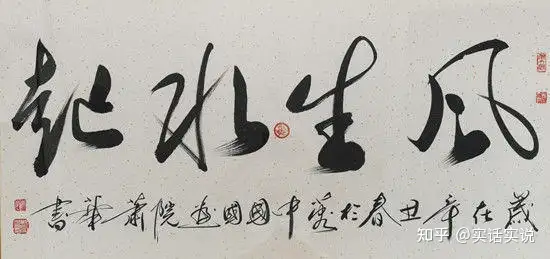 风生水起
歲在辛丑春於中國國畫院蕭華書
知乎 @实话实说